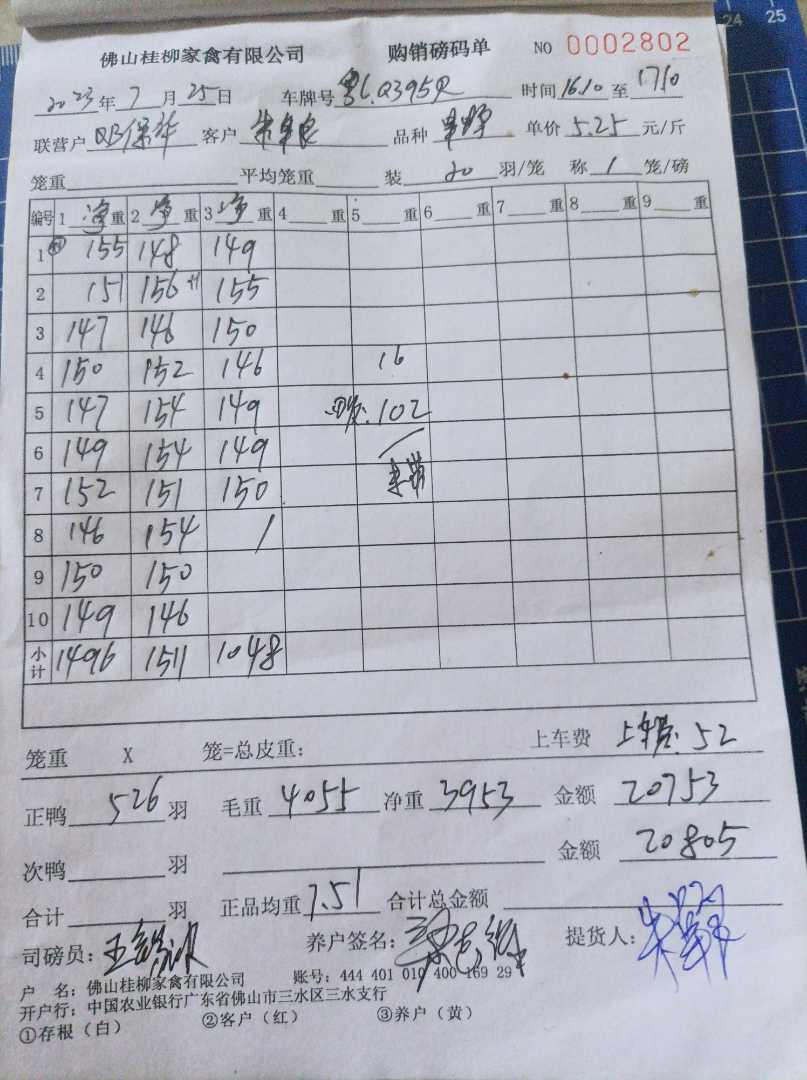 24 25
佛山桂柳家禽有限公司 购销磅码单 NO 0002802
2023年7月25日 车牌号粤L.Q395R 时间16.10至1710
联营户 客户 品种 单价5.25元/斤
笼重 平均笼重 装20羽/笼 称1笼/磅
编号 1净重 2净重 3净重 4重 5重 6重 7重 8重 9重
1 155 148 149
2 151 156 155
3 147 146 150
4 150 152 146 16
5 147 154 149 102
6 149 154 149
7 152 151 150
8 146 154 /
9 150 150
10 149 146
小计 1496 1511 1048
笼重 X 笼=总皮重: 上车费 上车费:52
正鸭526羽 毛重4055净重3953 金额20753
次鸭 羽 金额20805
合计 羽 正品均重7.51 合计总金额
司磅员: 养户签名: 提货人:
户 名:佛山桂柳家禽有限公司 账号:444 401 010 400 169 29
开户行:中国农业银行广东省佛山市三水区三水支行
①存根(白) ②客户(红) ③养户(黄)